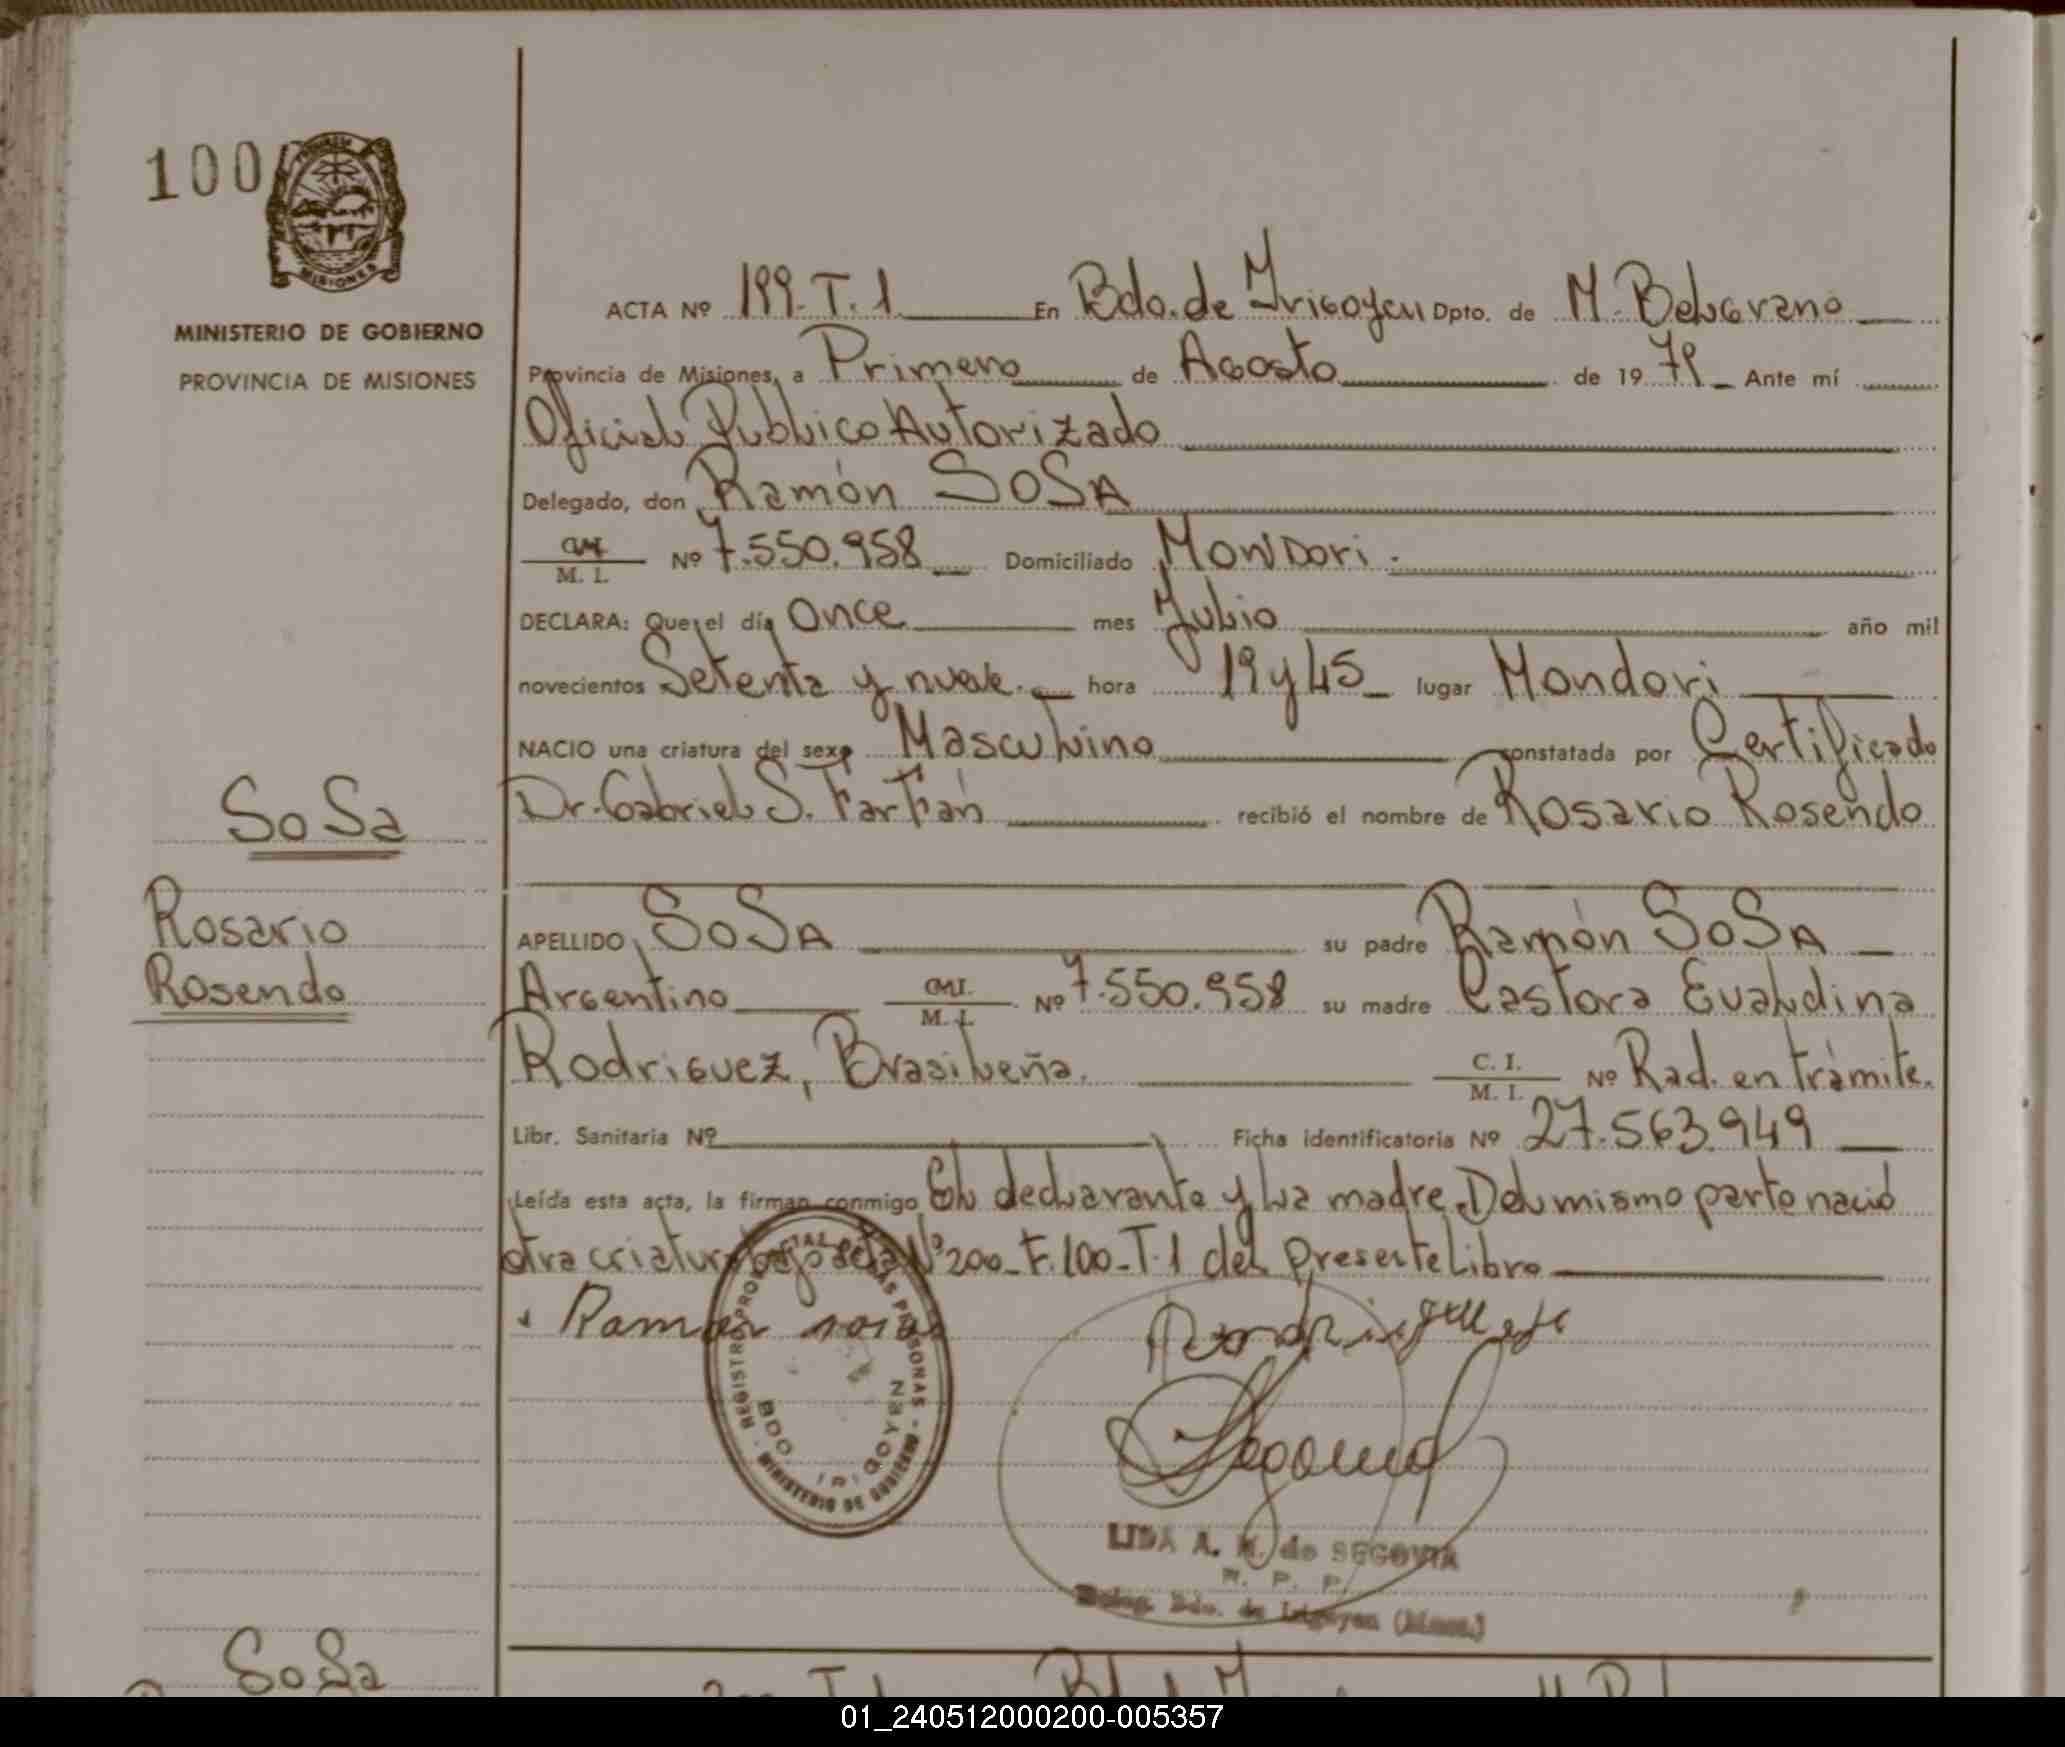 100
PROVINCIA
MISIONES
MINISTERIO DE GOBIERNO
PROVINCIA DE MISIONES
ACTA Nº 199-T.1 En Bdo. de Irigoyen Dpto. de M. Belgrano
Provincia de Misiones, a Primero de Agosto de 1979 Ante mí
Oficial Publico Autorizado
Delegado, don Ramón SoSA
M. I. Nº 7.550.958 Domiciliado MonDori.
DECLARA: Que el día Once mes Julio año mil
novecientos Setenta y nueve. hora 19 y 45 lugar Mondori
NACIO una criatura del sexo Masculino constatada por Certificado
Dr. Gabriel S. Farfán recibió el nombre de Rosario Rosendo
SoSa
Rosario
Rosendo
APELLIDO SoSA su padre Ramón SoSA
Argentino M. I. Nº 7.550.958 su madre Castora Evaldina
Rodriguez, Brasileña. C. I. M. I. Nº Rad. en trámite.
Libr. Sanitaria Nº Ficha identificatoria Nº 27.563.949
Leída esta acta, la firman conmigo El declarante y la madre. Del mismo parto nació
otra criatura bajo acta Nº 200-F.100-T.1 del presente Libro
Ramon sosa
REGISTRO PROVINCIAL DE LAS PERSONAS - MINISTERIO DE GOBIERNO -
BDO. IRIGOYEN
LIDA A. M. de SEGOVIA
R. P. P.
Deleg. Bdo. de Irigoyen (Mnes.)
SoSa
01_240512000200-005357